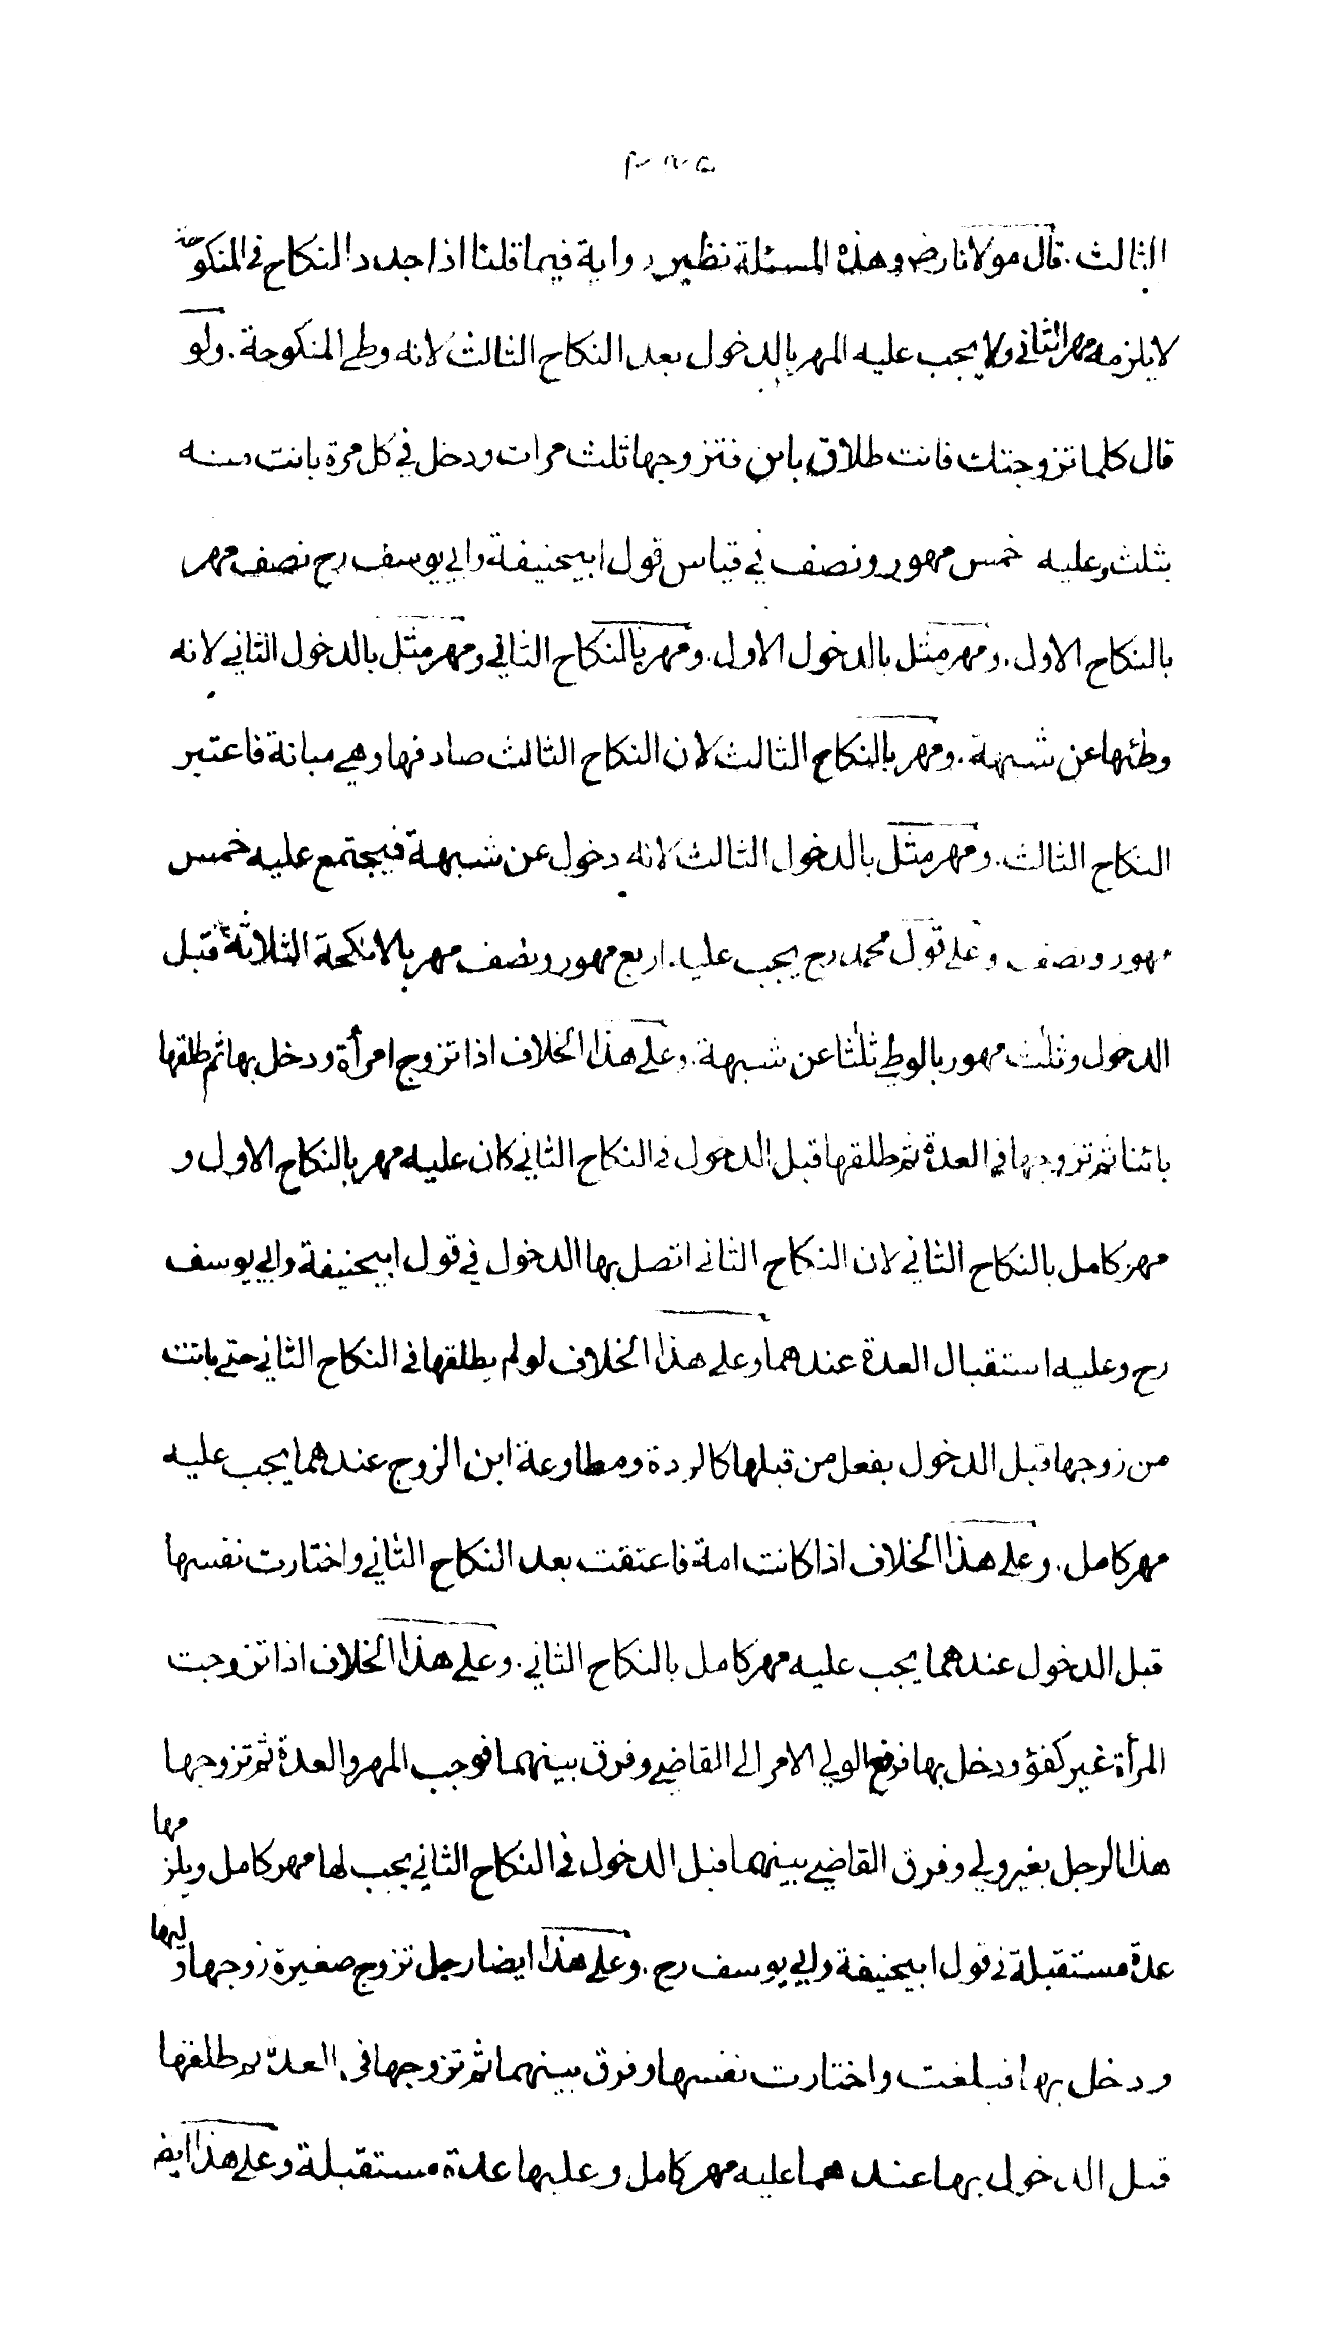 الثالث. قال مولانا رض وهذه المسئلة نظير رواية فيما قلنا اذا جدد النكاح في المنكوحة
لا يلزمه مهر الثاني ولا يجب عليه المهر بالدخول بعد النكاح الثالث لانه وطي المنكوحة. ولو
قال كلما تزوجتك فانت طلاق باين فتزوجها ثلث مرات ودخل في كل مرة بانت منه
بثلث وعليه خمس مهور ونصف في قياس قول ابيحنيفة وابي يوسف رح نصف مهر
بالنكاح الاول. ومهر مثل بالدخول الاول. ومهر بالنكاح الثاني ومهر مثل بالدخول الثاني لانه
وطئها عن شبهة. ومهر بالنكاح الثالث لان النكاح الثالث صادفها وهي مبانة فاعتبر
النكاح الثالث. ومهر مثل بالدخول الثالث لانه دخول عن شبهة فيجتمع عليه خمس
مهور ونصف وعلى قول محمد رح يجب عليه اربع مهور ونصف مهر بالانكحة الثلاثة قبل
الدخول وثلث مهور بالوطي ثلثا عن شبهة. وعلى هذا الخلاف اذا تزوج امرأة ودخل بها ثم طلقها
بائنا ثم تزوجها في العدة ثم طلقها قبل الدخول في النكاح الثاني كان عليه مهر بالنكاح الاول و
مهر كامل بالنكاح الثاني لان النكاح الثاني اتصل بها الدخول في قول ابيحنيفة وابي يوسف
رح وعليه استقبال العدة عندهما وعلى هذا الخلاف لو لم يطلقها في النكاح الثاني حتى بانت
من زوجها قبل الدخول بفعل من قبلها كالردة ومطاوعة ابن الزوج عندهما يجب عليه
مهر كامل. وعلى هذا الخلاف اذا كانت امة فاعتقت بعد النكاح الثاني واختارت نفسها
قبل الدخول عندهما يجب عليه مهر كامل بالنكاح الثاني. وعلى هذا الخلاف اذا تزوجت
المرأة غير كفؤ ودخل بها فرفع الولي الامر الى القاضي وفرق بينهما فوجب المهر والعدة ثم تزوجها
هذا الرجل بغير ولي وفرق القاضي بينهما قبل الدخول في النكاح الثاني يجب لها مهر كامل ويلزمها
عدة مستقبلة في قول ابيحنيفة وابي يوسف رح. وعلى هذا ايضا رجل تزوج صغيرة زوجها وليها
ودخل بها فبلغت واختارت نفسها وفرق بينهما ثم تزوجها في العدة ثم طلقها
قبل الدخول بها عندهما عليه مهر كامل وعليها عدة مستقبلة وعلى هذا ايض